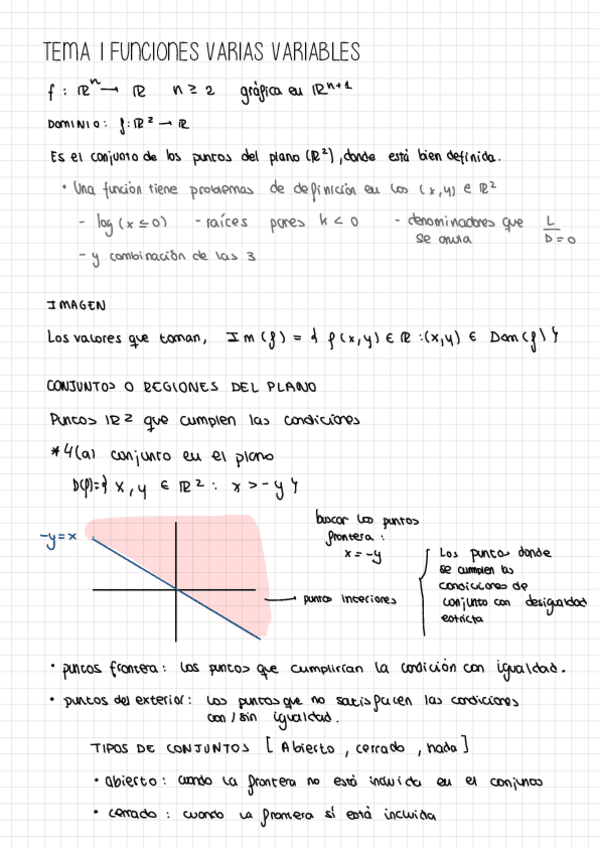 TEMA 1 FUNCIONES VARIAS VARIABLES
f : ℝⁿ → ℝ n ≥ 2 gráfica en ℝⁿ⁺¹
DOMINIO: f: ℝ² → ℝ
Es el conjunto de los puntos del plano (ℝ²), donde está bien definida.
• Una función tiene problemas de definición en los (x,y) ∈ ℝ²
- log (x ≤ 0) - raíces pares k < 0 - denominadores que se anula L/D=0
- y combinación de las 3
IMAGEN
Los valores que toman, Im (f) = { f(x,y) ∈ ℝ : (x,y) ∈ Dom(f) }
CONJUNTOS O REGIONES DEL PLANO
Puntos ℝ² que cumplen las condiciones
*4(a) conjunto en el plano
D(f)={ x, y ∈ ℝ² : x > -y }
-y=x
buscar los puntos
frontera :
x = -y
puntos interiores
Los puntos donde
se cumplen las
condiciones de
conjunto con desigualdad
estricta
• puntos frontera: los puntos que cumplirían la condición con igualdad.
• puntos del exterior: Los puntos que no satisfacen las condiciones
con / sin igualdad.
TIPOS DE CONJUNTOS [ Abierto, cerrado, nada ]
• abierto: cuando la frontera no está incluida en el conjunto
• cerrado : cuando la frontera sí está incluida